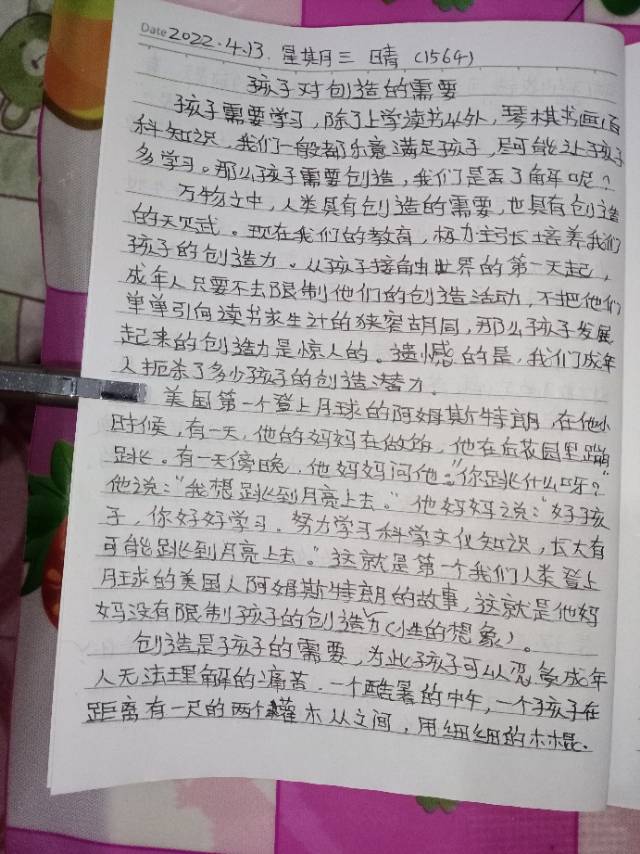 Date 2022.4.13. 星期三 晴 (1564)
孩子对创造的需要
孩子需要学习,除了上学读书以外,琴棋书画百
科知识,我们一般都乐意满足孩子,尽可能让孩子
多学习。那么孩子需要创造,我们是否了解呢?
万物之中,人类具有创造的需要,也具有创造
的天赋。现在我们的教育,极力主张培养我们
孩子的创造力。从孩子接触世界的第一天起,
成年人只要不去限制他们的创造活动,不把他们
单单引向读书求生计的狭窄胡同,那么孩子发展
起来的创造力是惊人的。遗憾的是,我们成年
人扼杀了多少孩子的创造潜力。
美国第一个登上月球的阿姆斯特朗,在他小
时候,有一天,他的妈妈在做饭,他在后花园里蹦
跳。有一天傍晚,他妈妈问他:"你跳什么呀?"
他说:"我想跳到月亮上去。"他妈妈说:"好孩
子,你好好学习,努力学习科学文化知识,长大有
可能跳到月亮上去。"这就是第一个我们人类登上
月球的美国人阿姆斯特朗的故事,这就是他妈
妈没有限制孩子的创造力(性的想象)。
创造是孩子的需要,为此孩子可以忍受成年
人无法理解的痛苦。一个酷暑的中午,一个孩子在
距离有一尺的两个灌木丛之间,用细细的木棍.